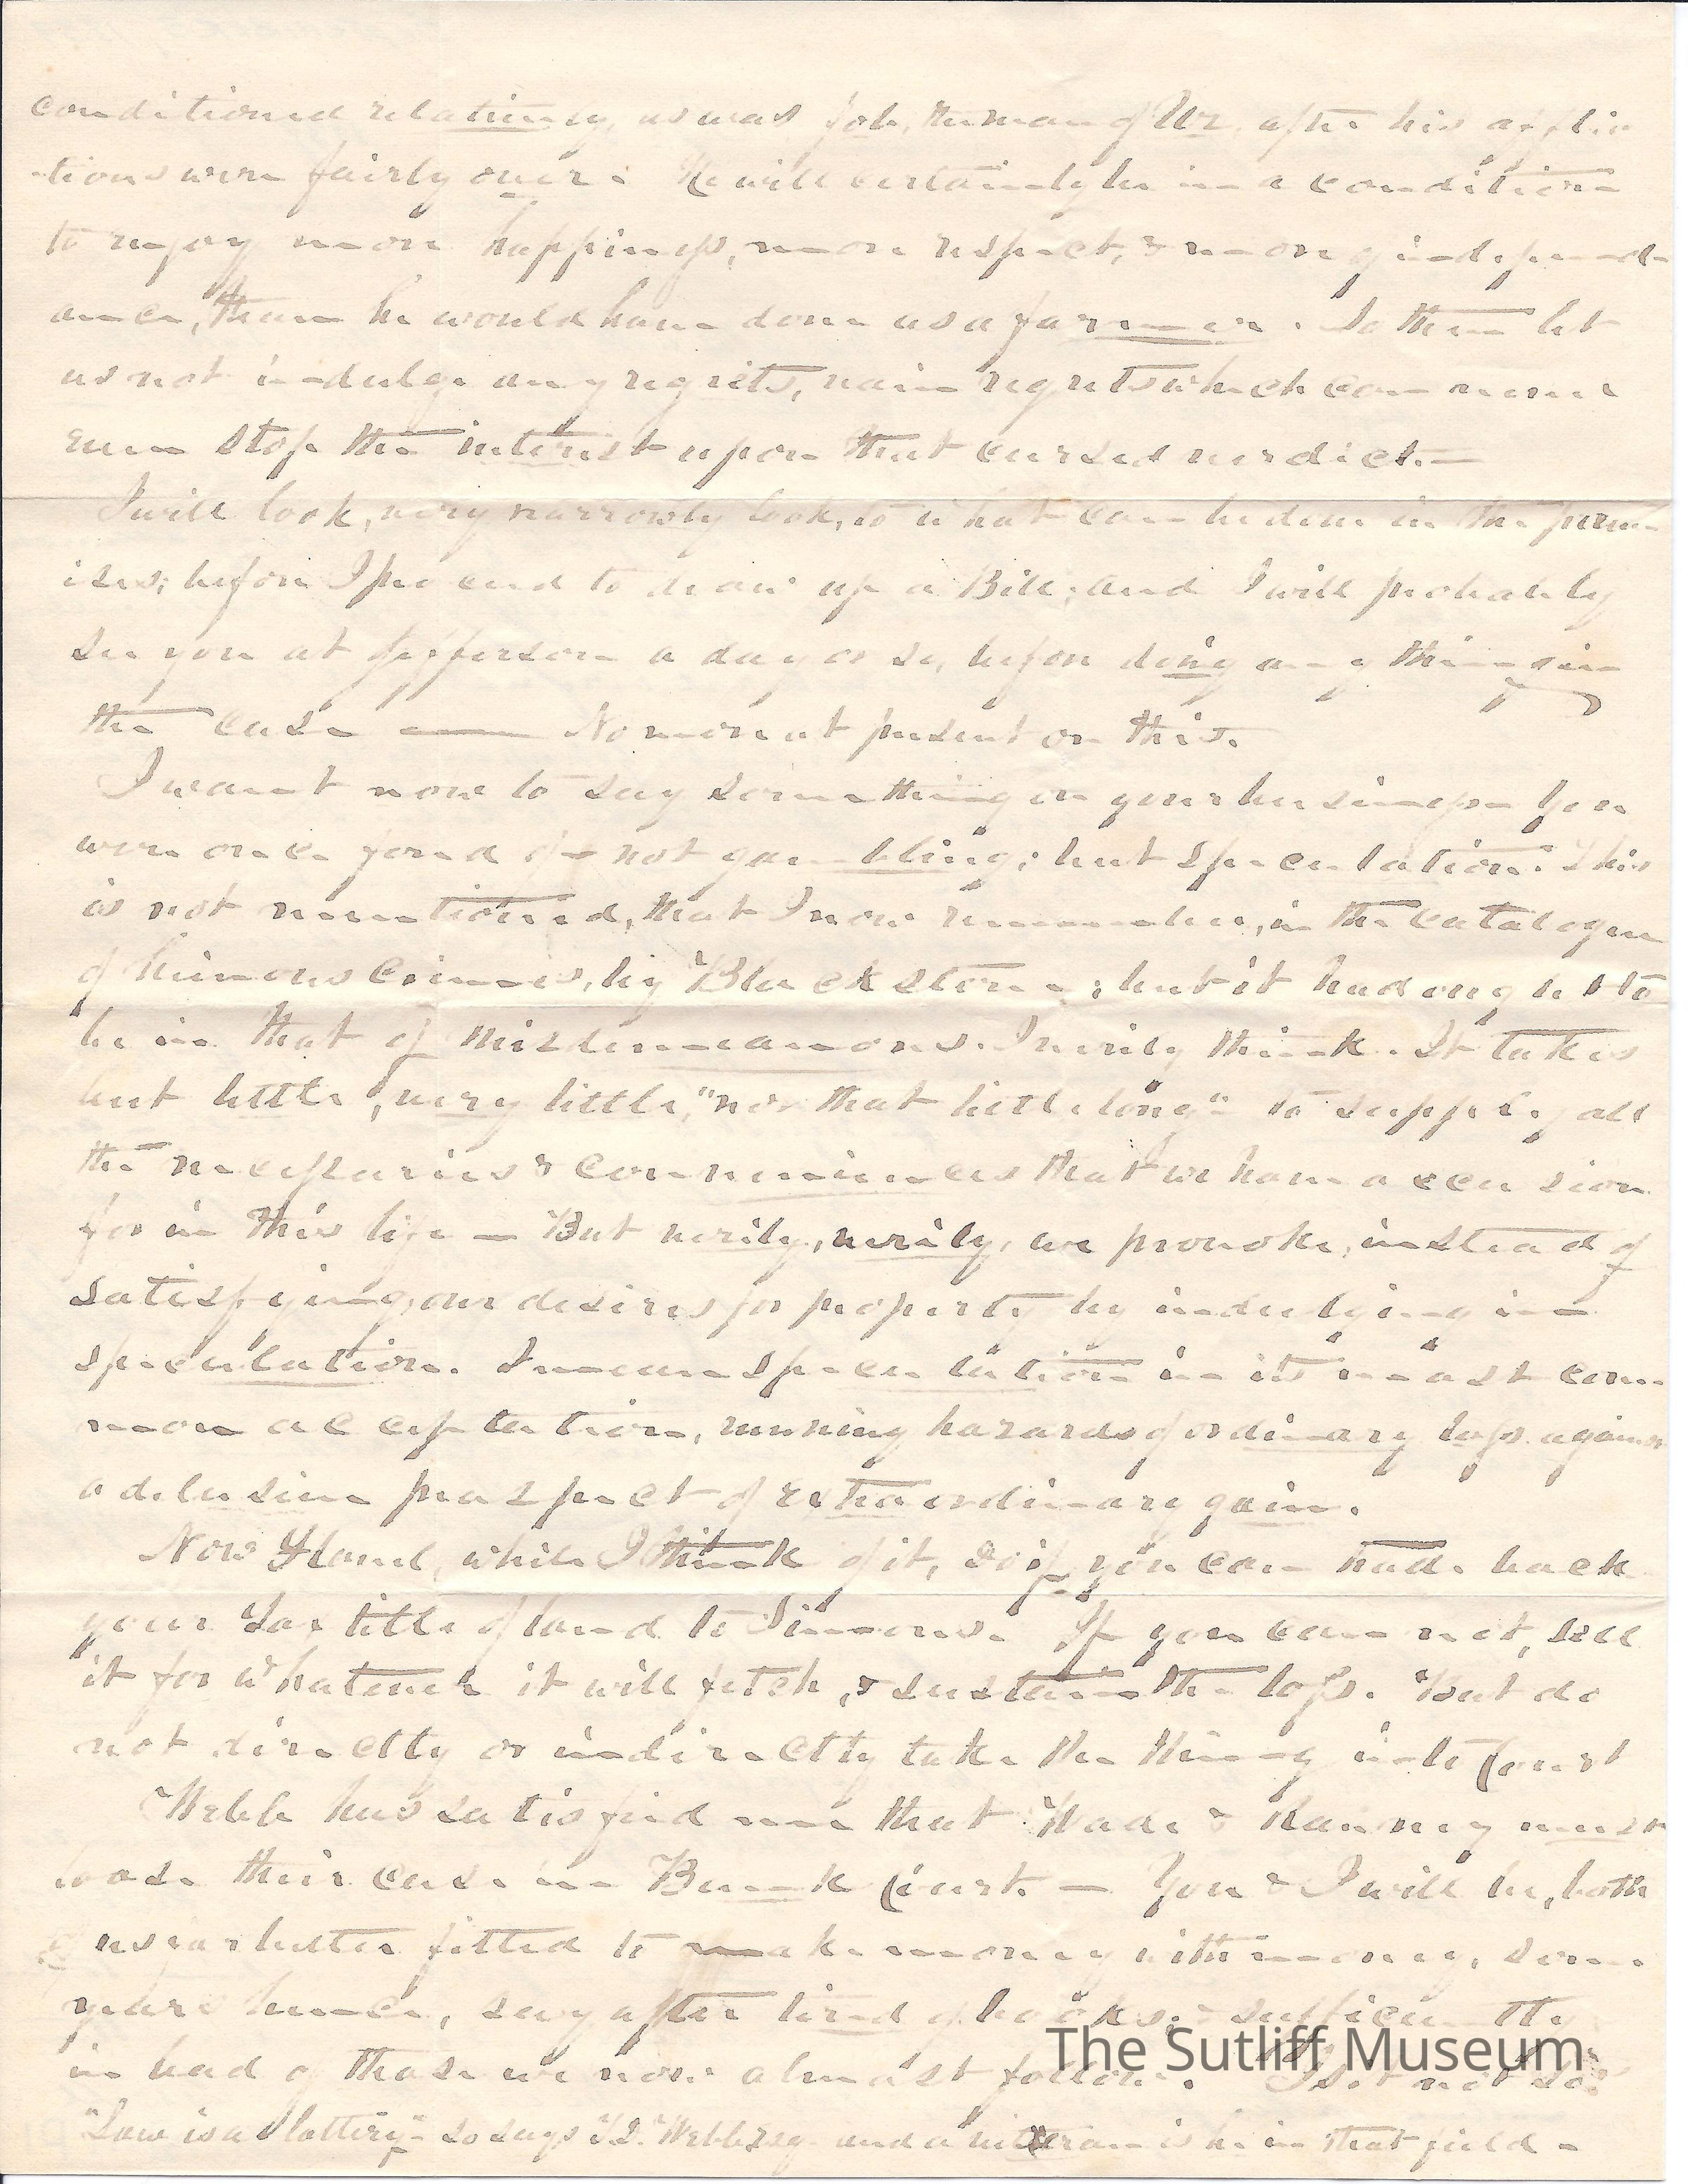 conditioned relatively, as was Job, the man of Uz, after his afflic
-tions were fairly over. He will certainly be in a condition
to enjoy more happiness, more respect, & more of independ-
ance, than he would have done as a farmer. So then let
us not indulge any regrets, vain regrets which can never
even stop the interest upon that cursed verdict.—
I will look, very narrowly look, to what can be done in the prem-
ises; before I proceed to draw up a Bill; and I will probably
see you at Jefferson a day or so, before doing any thing in
the case — No more at present on this.
I want now to say something on your business. You
were once fond of - not gambling; but speculation. This
is not mentioned, that I now remember, in the catalogue
of heinous crimes, by Blackstone; but it had ought to
be in that of misdemeanors. I verily think. It takes
but little, very little, "nor that little long" to supply all
the necessaries & conveniences that we have occasion
for in this life — But verily, verily, we provoke, instead of
satisfying, our desires for property by indulging in
speculation. I mean speculation in its most com-
mon acceptation, running hazards of ordinary loss against
a delusive prospect of extraordinary gain.
Now, while I think of it, do if you can trade back
your Tax title of land to Simons. If you can not, sell
it for whatever it will fetch, & sustain the loss. But do
not directly or indirectly take the thing into Court
Webb has satisfied me that Wade & Ranney must
loose their case in Bank Court. — You & I will be, both
of us far better fitted to make money with money, some
years hence, say after tired of books, & sufficiently
in had of those we now almost follow. Is it not so?
"Law is a lottery" so says T.D. Webb Esq. and a viteran is he in that field -
The Sutliff Museum